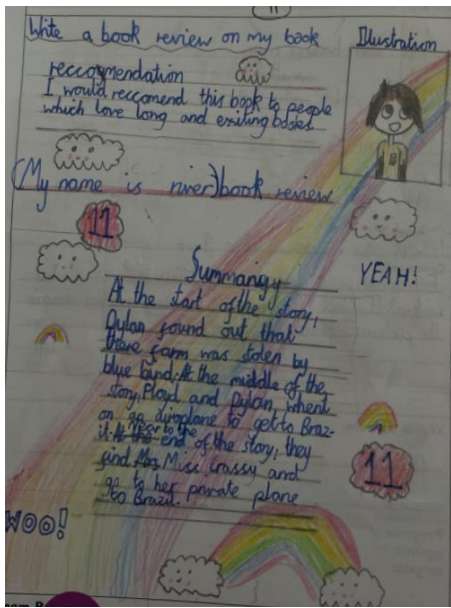 11
Write a book review on my book
Illustration
reccomendation
I would reccomend this book to people
which love long and exiting books.
(My name is river) book review
11
YEAH!
Summary
At the start of the story,
Dylan found out that
there farm was stolen by
blue bird. At the middle of the
story, Floyd and Dylan, whent
on an airoplane to get to Braz-
il. Near to the end of the story, they
find Miss Crassy and
go to her private plane
to Brazil.
11
WOO!